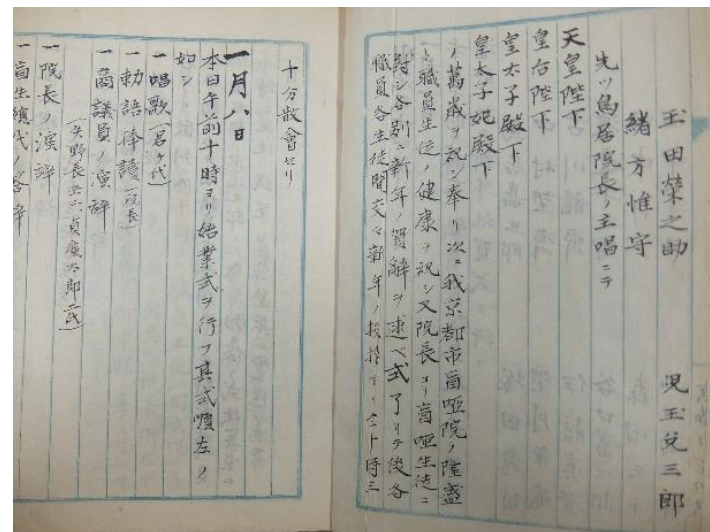 玉田榮之助　児玉兌三郎
緒方惟守
先ツ鳥居院長ノ主唱ニテ
天皇陛下
皇后陛下
皇太子殿下
皇太子妃殿下
ノ萬歳ヲ祝シ奉リ次ニ我京都市盲唖院ノ隆盛
ト職員生徒ノ健康ヲ祝シ又院長ヨリ盲唖生徒ニ
對シ各別ニ新年ノ賀辭ヲ述ベ式了リテ後各
職員各生徒間交々新年ノ挨拶アリ仝十時三
十分散會セリ
一月八日
本日午前十時ヨリ始業式ヲ行フ其式順左ノ
如シ
一唱歌(君ヶ代)
一勅語捧讀(院長)
一商議員ノ演辞
(矢野長 貞廣太郎二氏)
一院長ノ演辞
一盲生總代ノ答辞